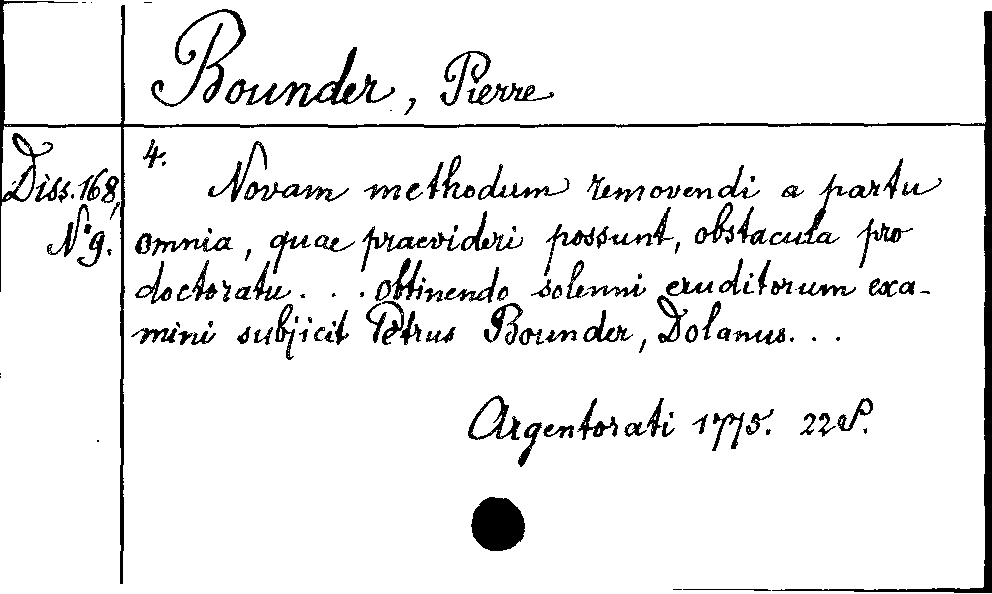 Bounder, Pierre
Diss. 168,
N° 9.
4.
Novam methodum removendi a partu
omnia, quae praevideri possunt, obstacula pro
doctoratu . . . obtinendo solenni eruditorum exa-
mini subjicit Petrus Bounder, Dolanus. . .
Argentorati 1775. 22 S.